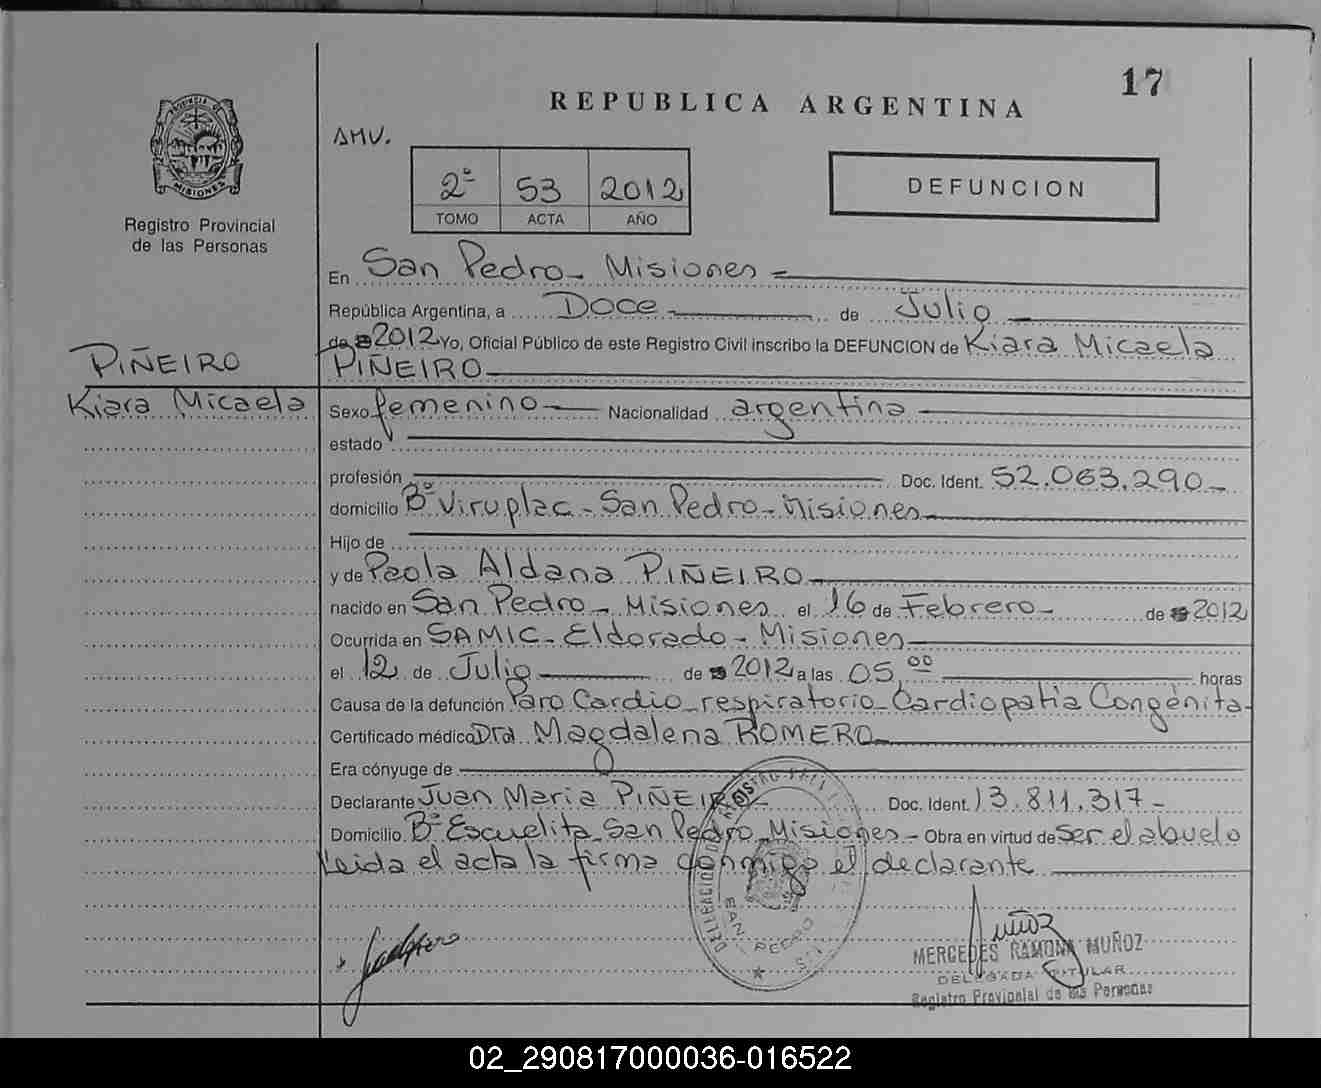 17
REPUBLICA ARGENTINA
PROVINCIA DE
MISIONES
Registro Provincial
de las Personas
AMV.
2º 53 2012
TOMO ACTA AÑO
DEFUNCION
En San Pedro - Misiones =
República Argentina, a Doce de Julio
de 2012 Yo, Oficial Público de este Registro Civil inscribo la DEFUNCION de Kiara Micaela
PIÑEIRO
PIÑEIRO
Kiara Micaela
Sexo femenino Nacionalidad argentina
estado
profesión Doc. Ident. 52.063.290-
domicilio Bº Viruplac - San Pedro - Misiones
Hijo de
y de Paola Aldana PIÑEIRO
nacido en San Pedro - Misiones el 16 de Febrero - de 2012
Ocurrida en SAMIC - Eldorado - Misiones
el 12 de Julio de 2012 a las 05,00 horas
Causa de la defunción Paro Cardio respiratorio - Cardiopatía Congénita -
Certificado médico Dra Magdalena ROMERO
Era cónyuge de
Declarante Juan Maria PIÑEIRO Doc. Ident. 13.811.317-
Domicilio Bº Escuelita San Pedro Misiones - Obra en virtud de ser el abuelo
Leida el acta la firma conmigo el declarante
SAN PEDRO
Muñoz
MERCEDES RAMONA MUÑOZ
DELEGADA TITULAR
Registro Provincial de las Personas
02_290817000036-016522